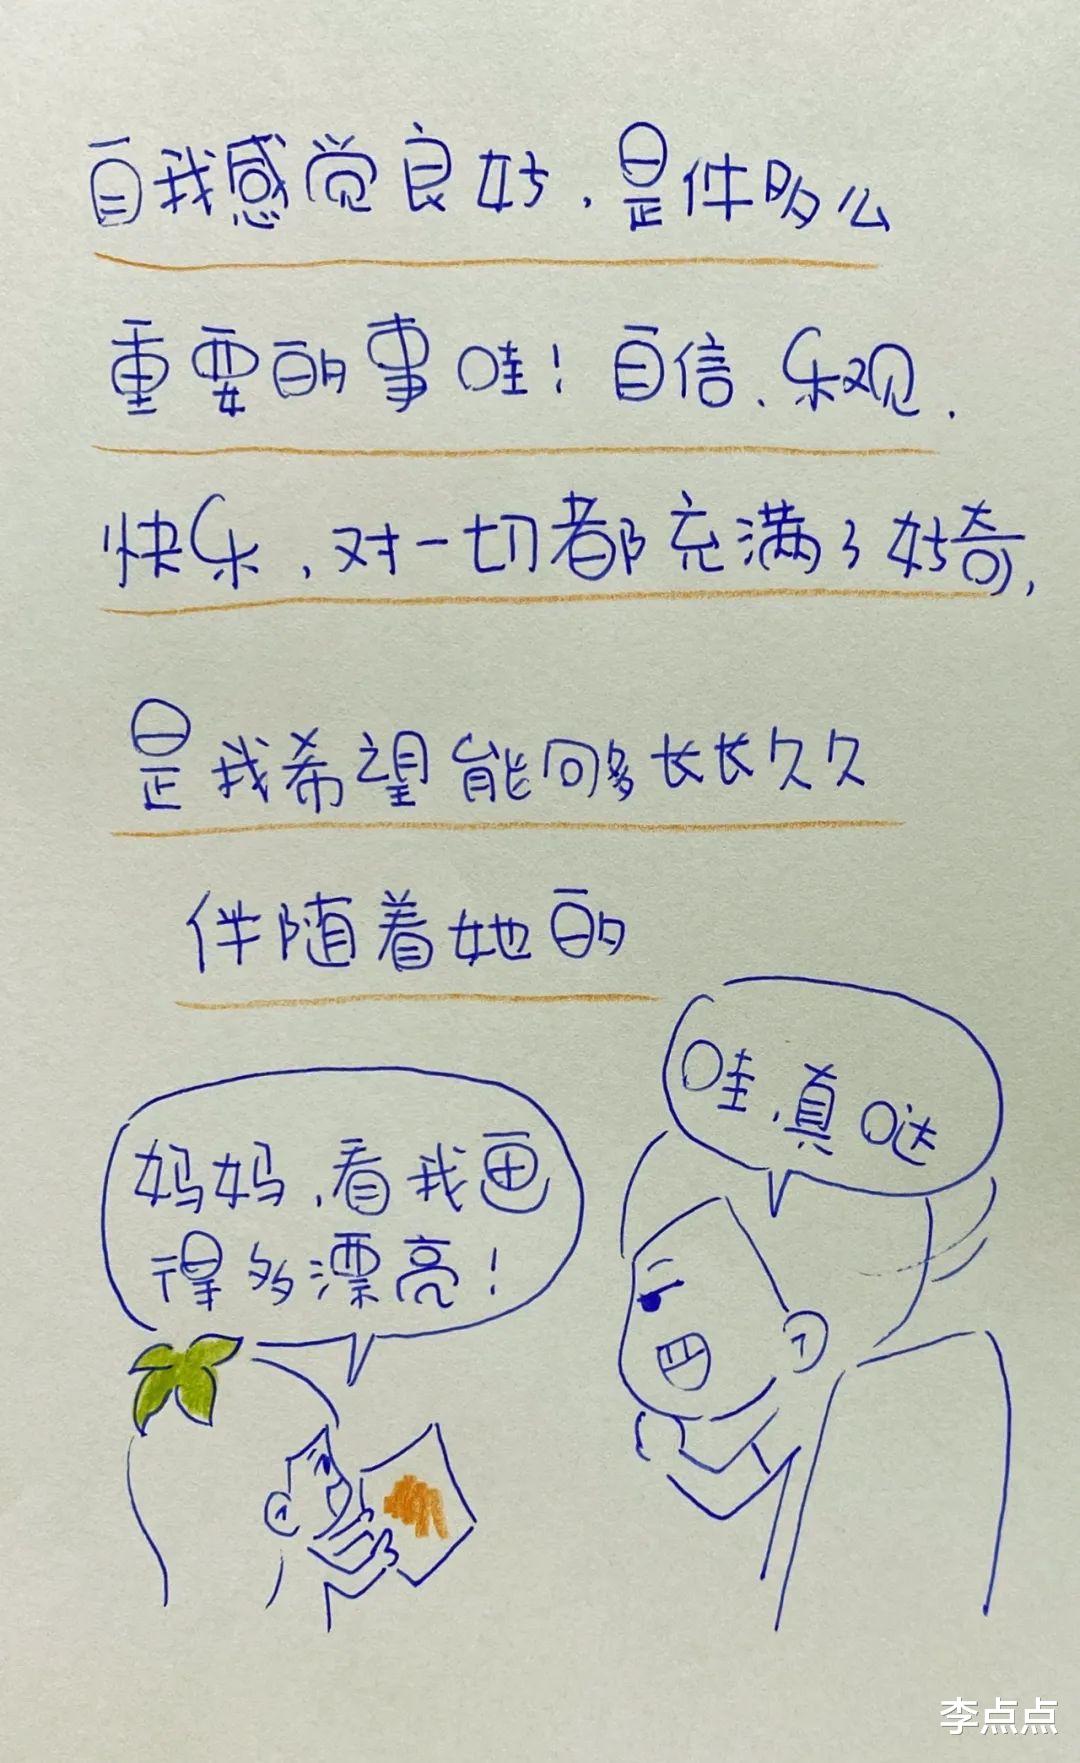 自我感觉良好，是件多么
重要的事哇！自信、乐观、
快乐，对一切都充满了好奇，
是我希望能够长长久久
伴随着她的
哇，真哒
妈妈，看我画
得多漂亮！
李点点